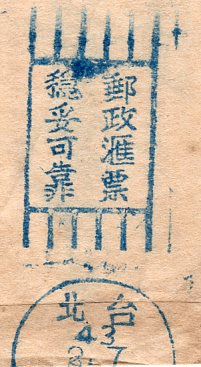 郵政滙票
穩妥可靠
台北
43
3.7